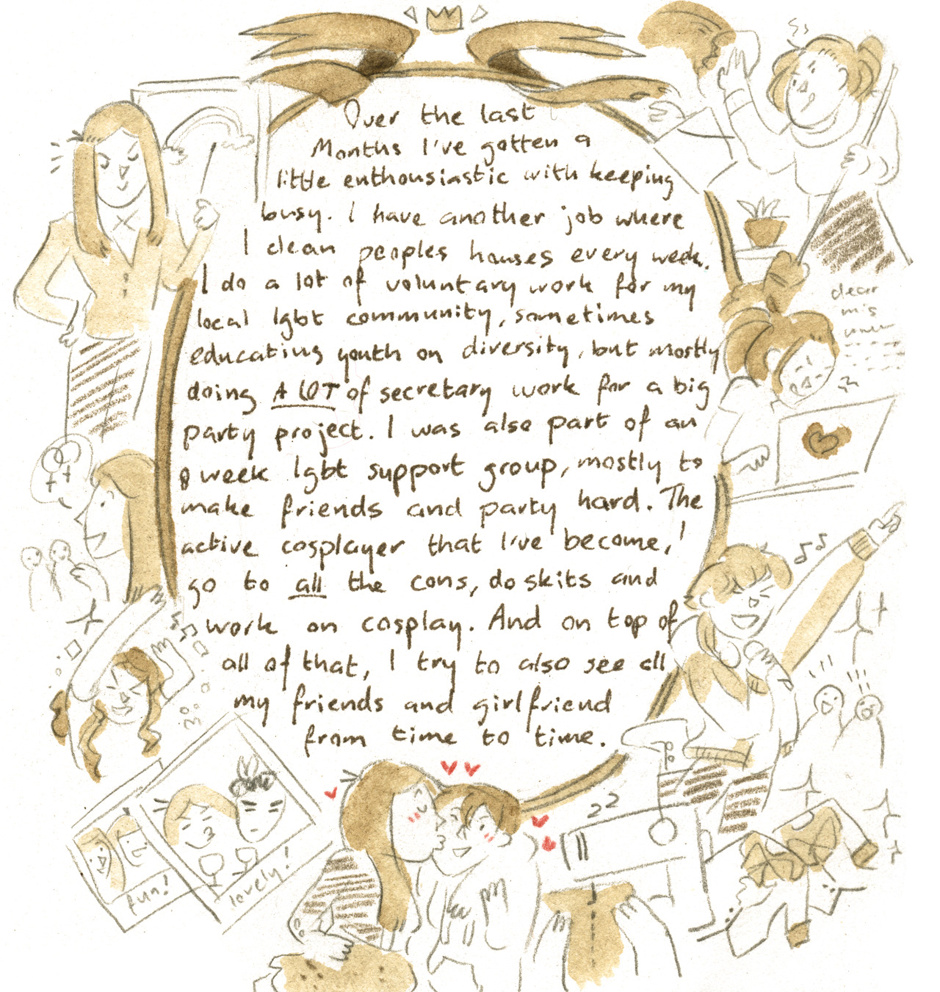 Over the last
Months I've gotten a
little enthousiastic with keeping
busy. I have another job where
I clean peoples houses every week.
I do a lot of voluntary work for my
local lgbt community, sometimes
educating youth on diversity, but mostly
doing A LOT of secretary work for a big
party project. I was also part of an
8 week lgbt support group, mostly to
make friends and party hard. The
active cosplayer that I've become, I
go to all the cons, do skits and
work on cosplay. And on top of
all of that, I try to also see all
my friends and girlfriend
from time to time.
dear
mis
fun!
lovely!
zz